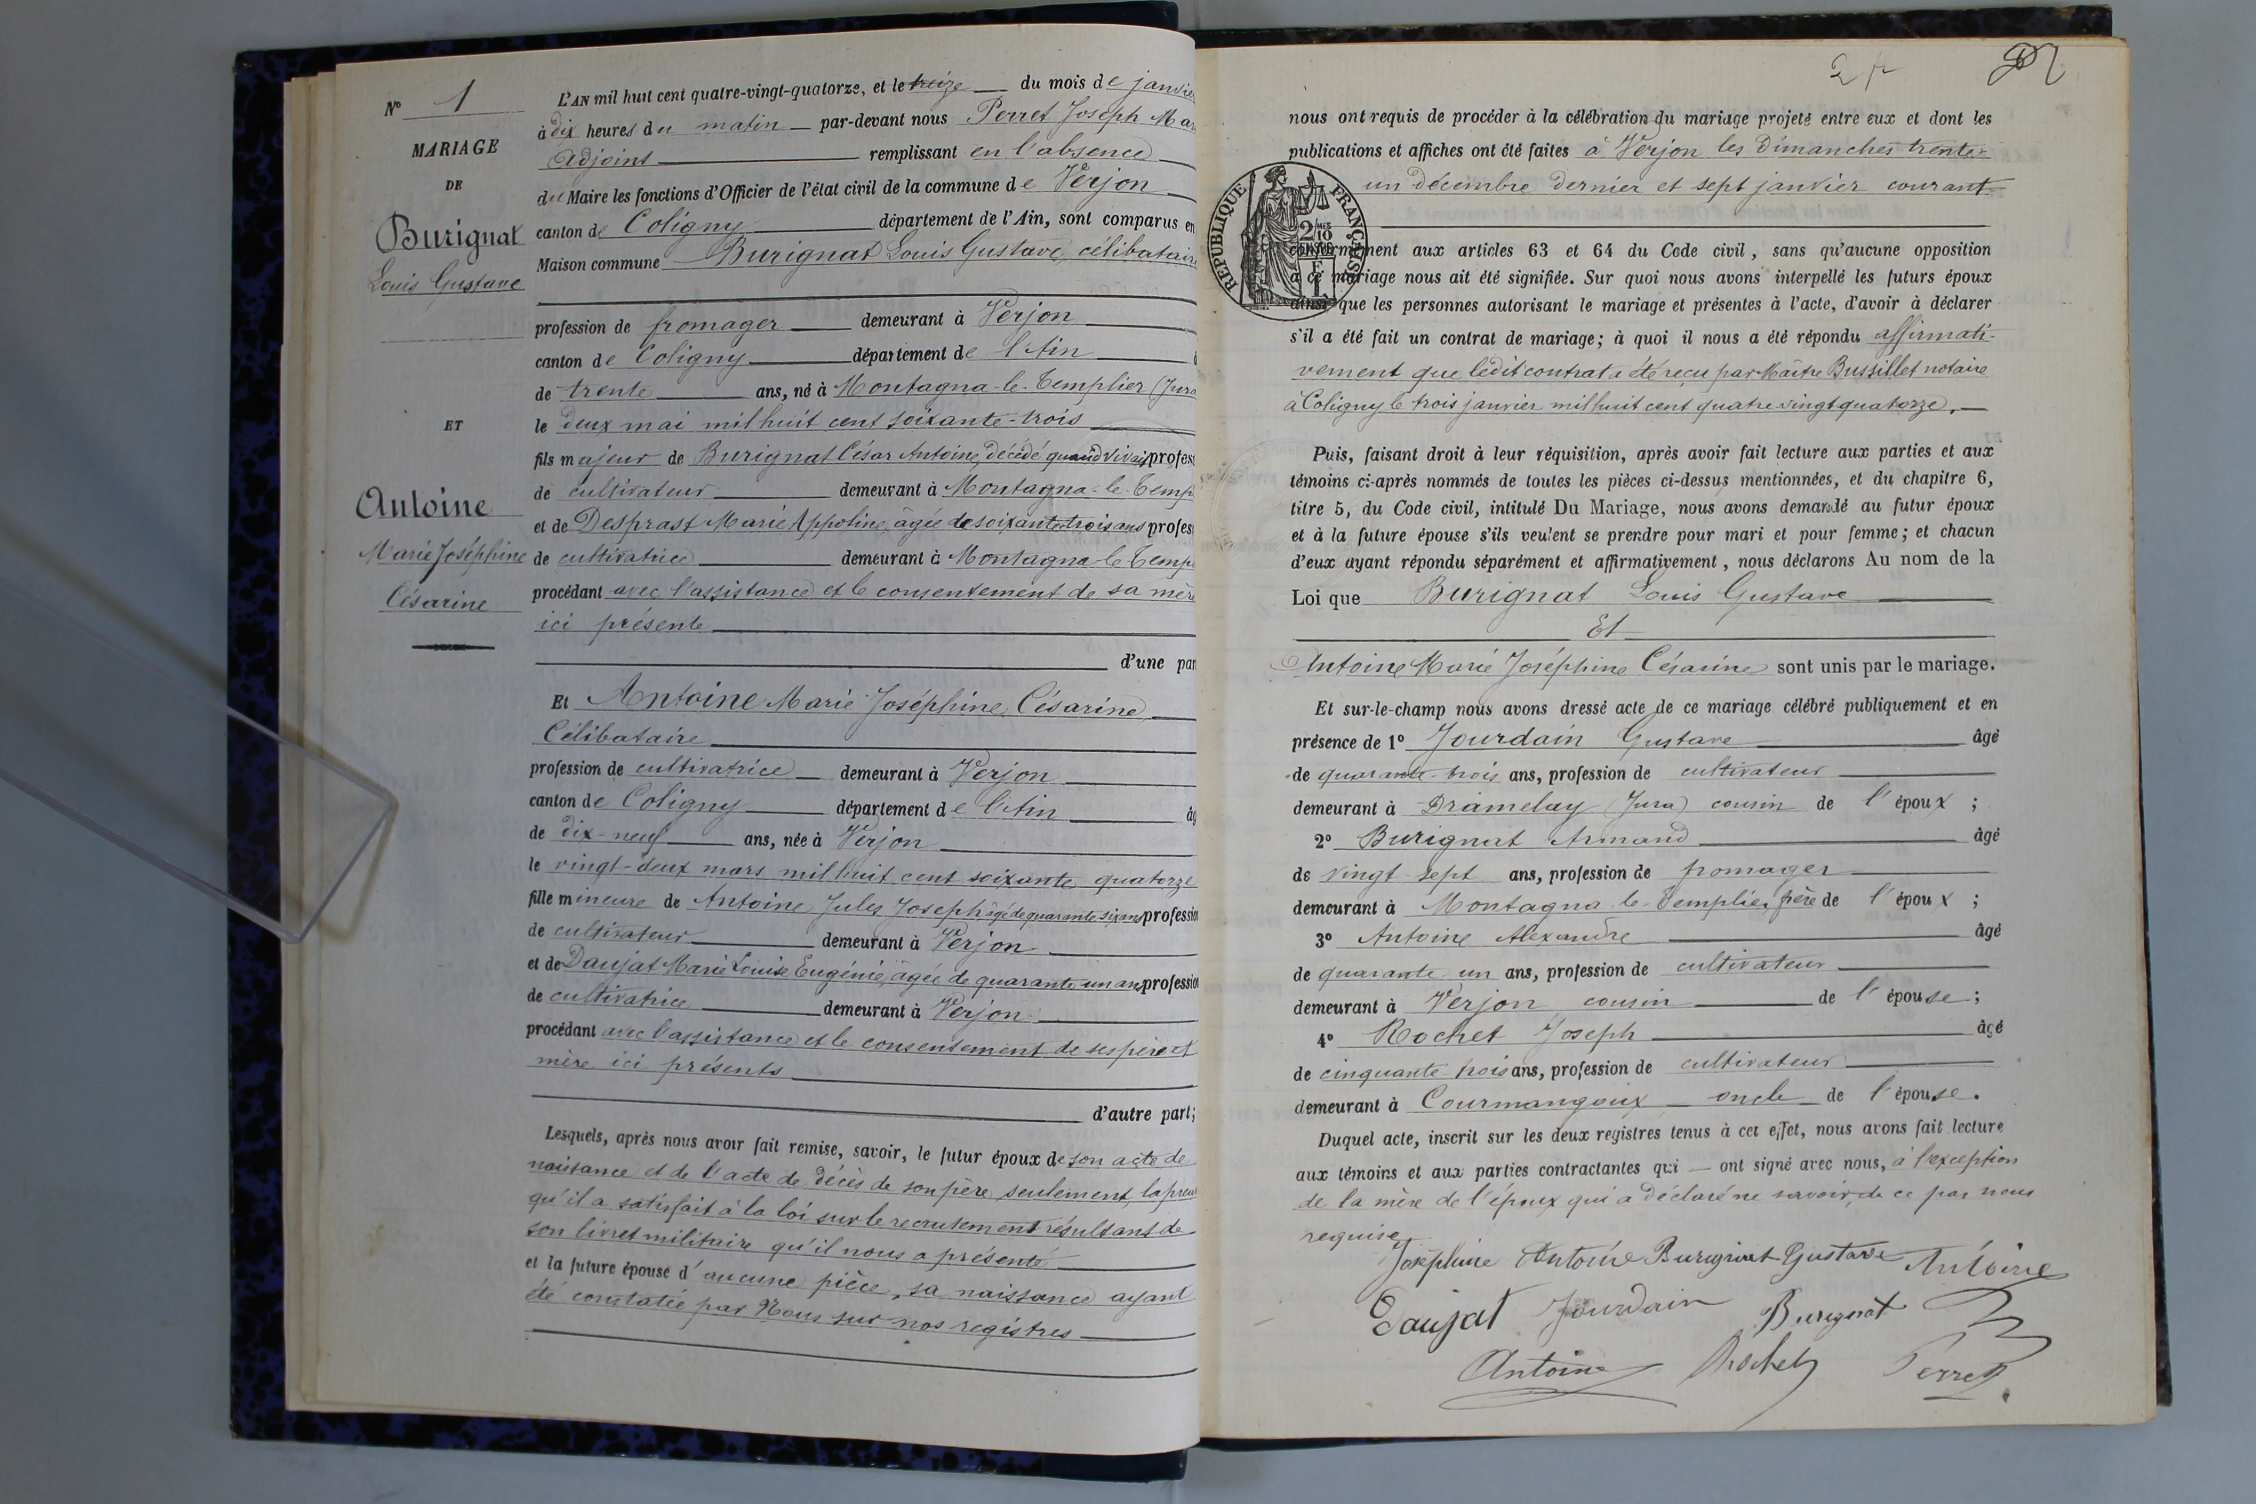 N° 1
MARIAGE
DE
Burignat
Louis Gustave
ET
Antoine
Marie Joséphine
Césarine
L'AN mil huit cent quatre-vingt-quatorze, et le treize du mois de janvier
à dix heures du matin par-devant nous Perret Joseph Mar
Adjoint remplissant en l'absence
du Maire les fonctions d'Officier de l'état civil de la commune de Verjon
canton de Coligny département de l'Ain, sont comparus en
Maison commune Burignat Louis Gustave, célibataire
profession de fromager demeurant à Verjon
canton de Coligny département de l'Ain
de trente ans, né à Montagna-le-Templier (Jura
le deux mai mil huit cent soixante-trois
fils majeur de Burignat César Antoine, décédé quand vivait profess
de cultivateur demeurant à Montagna-le-Temp
et de Desprast Marie Appoline, âgée de soixante trois ans profes
de cultivatrice demeurant à Montagna-le-Temp
procédant avec l'assistance et le consentement de sa mère
ici présente
d'une par
Et Antoine Marie Joséphine Césarine
Célibataire
profession de cultivatrice demeurant à Verjon
canton de Coligny département de l'Ain âg
de dix-neuf ans, née à Verjon
le vingt-deux mars mil huit cent soixante quatorze
fille mineure de Antoine Jules Joseph âgé de quarante six ans profession
de cultivateur demeurant à Verjon
et de Daujat Marie Louise Eugénie, âgée de quarante un ans profession
de cultivatrice demeurant à Verjon
procédant avec l'assistance et le consentement de ses père et
mère ici présents
d'autre part;
Lesquels, après nous avoir fait remise, savoir, le futur époux de son acte de
naissance et de l'acte de décès de son père seulement, la preuv
qu'il a satisfait à la loi sur le recrutement résultant de
son livret militaire qu'il nous a présenté
et la future épouse d'aucune pièce, sa naissance ayant
été constatée par Nous sur nos registres
nous ont requis de procéder à la célébration du mariage projeté entre eux et dont les
publications et affiches ont été faites à Verjon les dimanches trente-
un décembre dernier et sept janvier courant
RÉPUBLIQUE FRANÇAISE
conformément aux articles 63 et 64 du Code civil, sans qu'aucune opposition
à ce mariage nous ait été signifiée. Sur quoi nous avons interpellé les futurs époux
ainsi que les personnes autorisant le mariage et présentes à l'acte, d'avoir à déclarer
s'il a été fait un contrat de mariage; à quoi il nous a été répondu affirmati-
vement que ledit contrat a été reçu par Maître Bussillet notaire
à Coligny le trois janvier mil huit cent quatre vingt quatorze.
Puis, faisant droit à leur réquisition, après avoir fait lecture aux parties et aux
témoins ci-après nommés de toutes les pièces ci-dessus mentionnées, et du chapitre 6,
titre 5, du Code civil, intitulé Du Mariage, nous avons demandé au futur époux
et à la future épouse s'ils veulent se prendre pour mari et pour femme; et chacun
d'eux ayant répondu séparément et affirmativement, nous déclarons Au nom de la
Loi que Burignat Louis Gustave
Et
Antoine Marie Joséphine Césarine sont unis par le mariage.
Et sur-le-champ nous avons dressé acte de ce mariage célébré publiquement et en
présence de 1° Jourdain Gustave âgé
de quarante-trois ans, profession de cultivateur
demeurant à Dramelay (Jura) cousin de l'époux;
2° Burignat Armand âgé
de vingt-sept ans, profession de fromager
demeurant à Montagna-le-Templier, frère de l'époux;
3° Antoine Alexandre âgé
de quarante-un ans, profession de cultivateur
demeurant à Verjon cousin de l'épouse;
4° Rochet Joseph âgé
de cinquante trois ans, profession de cultivateur
demeurant à Courmangoux oncle de l'épouse.
Duquel acte, inscrit sur les deux registres tenus à cet effet, nous avons fait lecture
aux témoins et aux parties contractantes qui ont signé avec nous, à l'exception
de la mère de l'époux qui a déclaré ne savoir, de ce par nous
requise
Joséphine Antoine Burignat Gustave Antoine
Daujat Jourdain Burignat
Antoine Rochet Perret